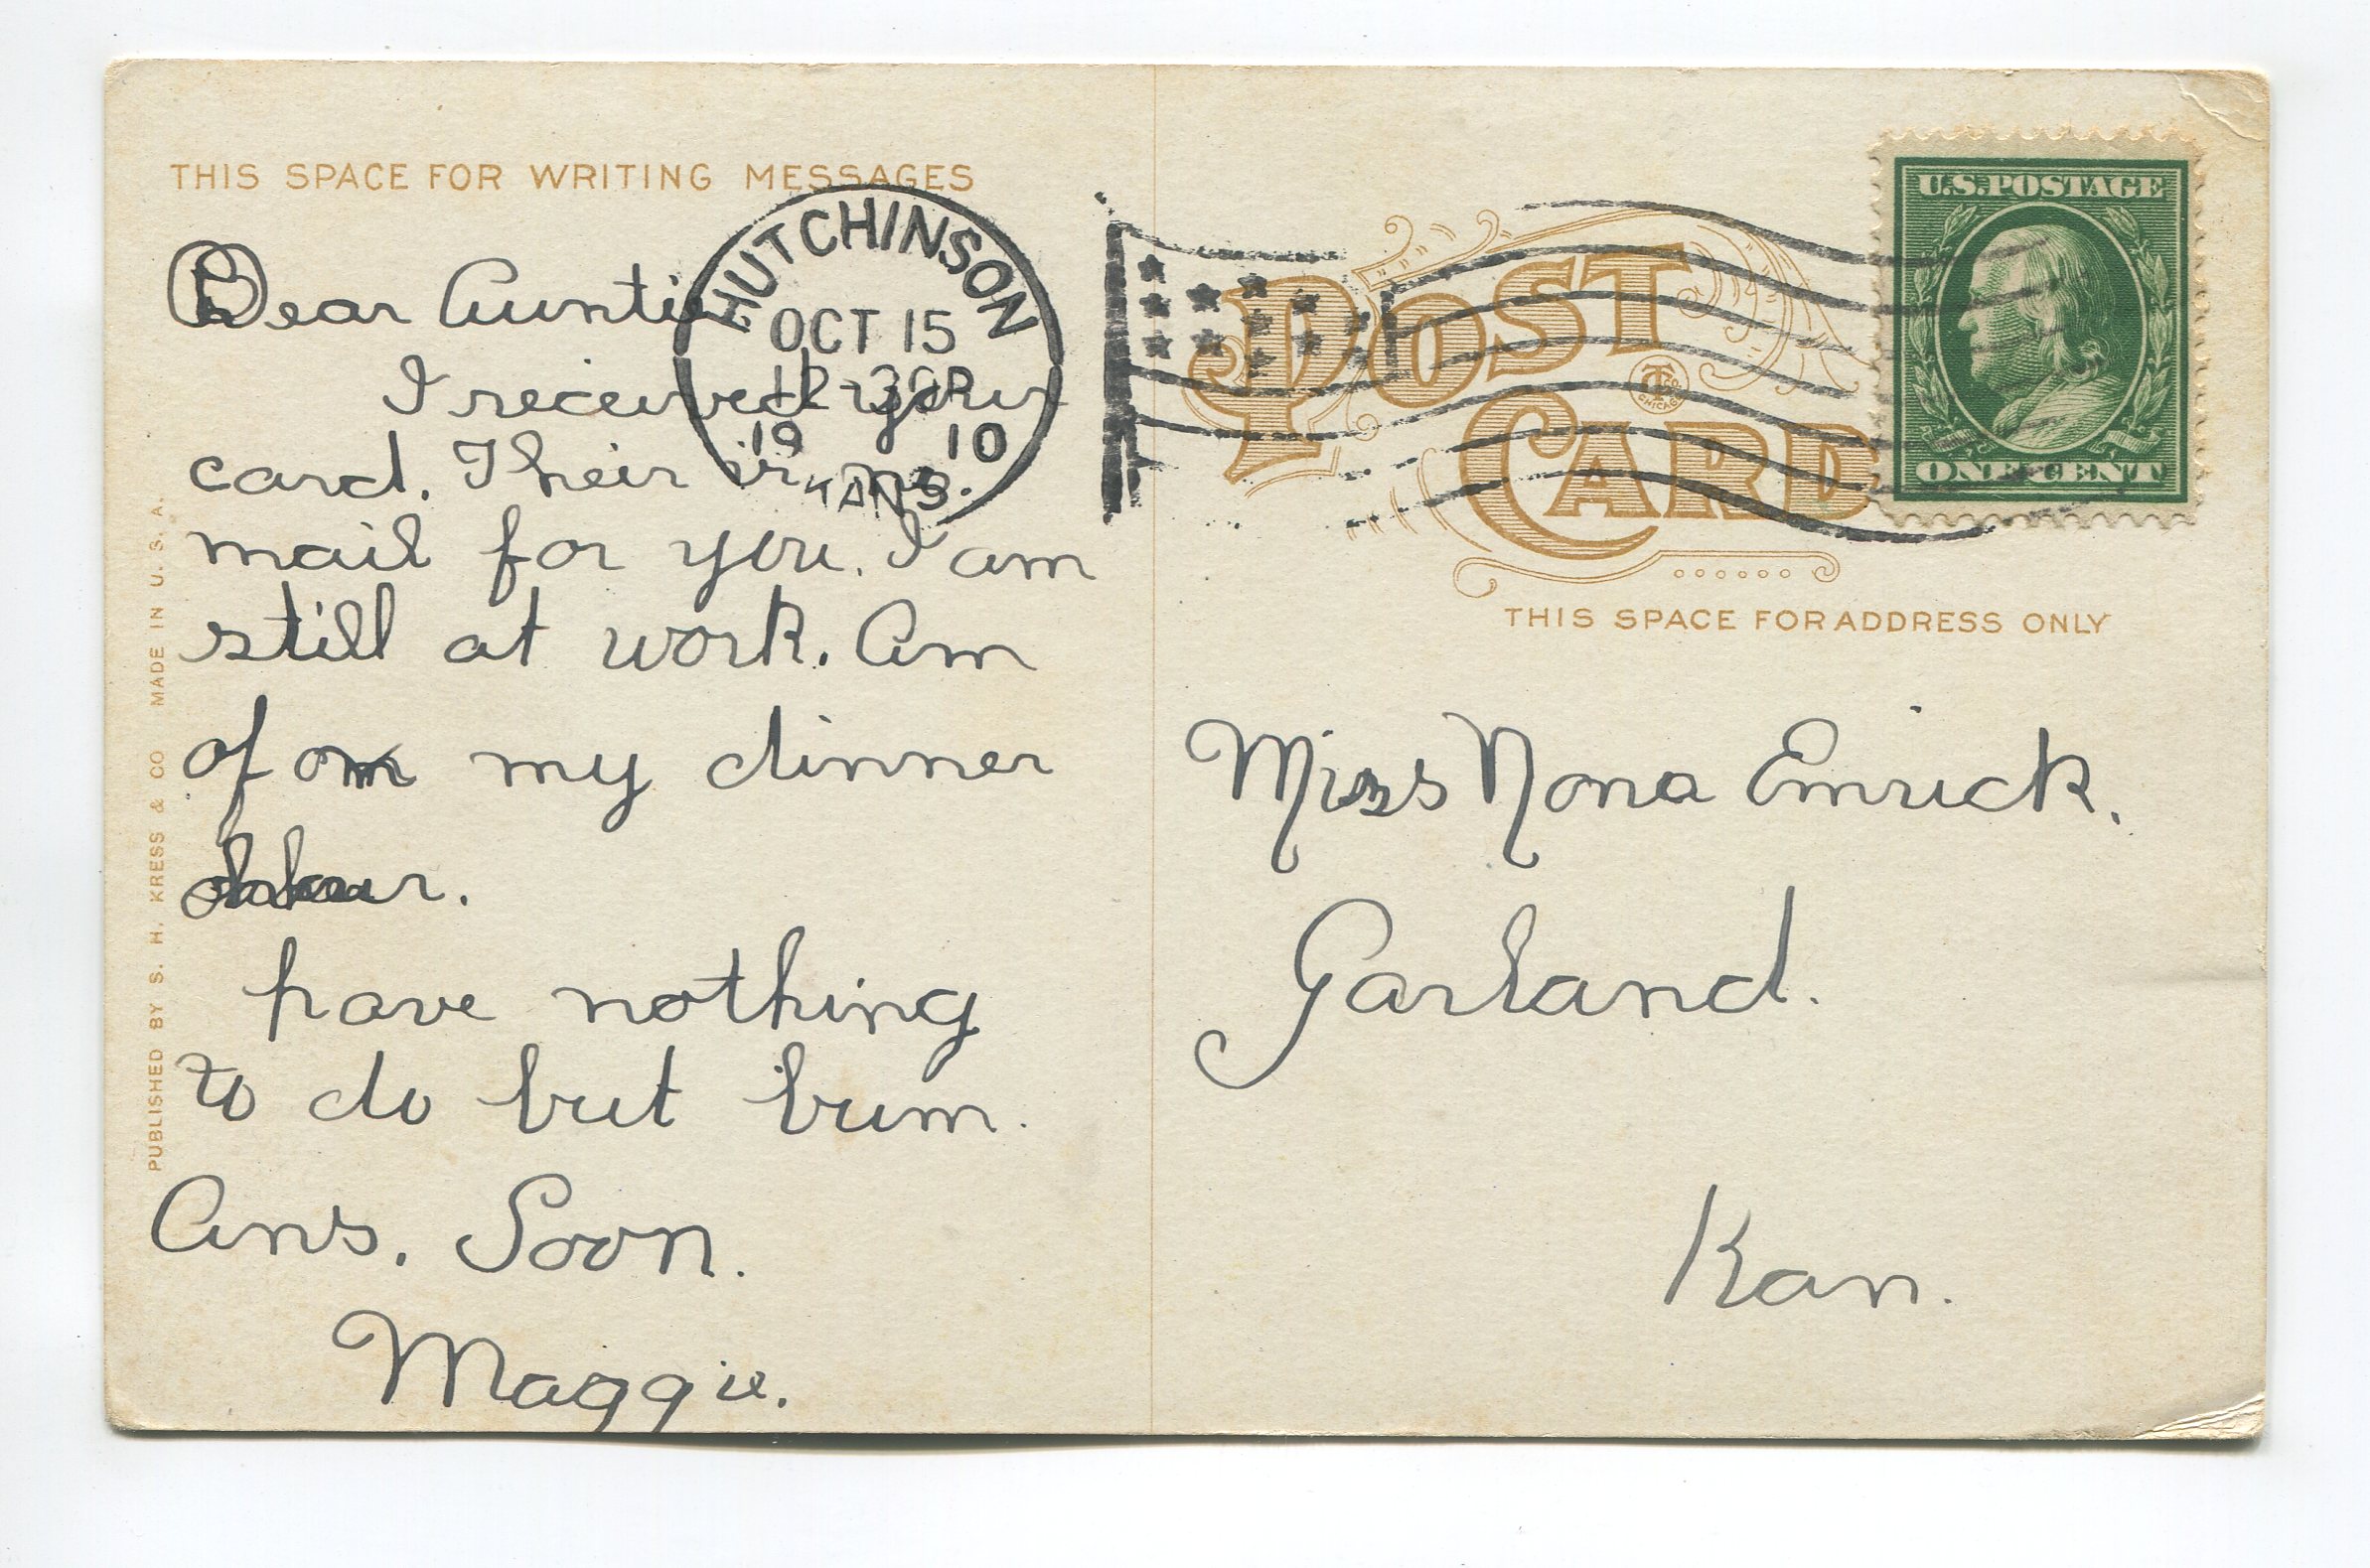 THIS SPACE FOR WRITING MESSAGES
Dear Auntie
I received your
card. Their is no.
mail for you. I am
still at work. Am
of on my dinner
hour.
have nothing
to do but bum.
Ans. Soon.
Maggie.
PUBLISHED BY S. H. KRESS & CO MADE IN U. S. A.
HUTCHINSON
OCT 15
12-30P
19 10
KANS.
POST
CARD
CHICAGO
U.S. POSTAGE
ONE CENT
THIS SPACE FOR ADDRESS ONLY
Miss Nona Emrick.
Garland.
Kan.